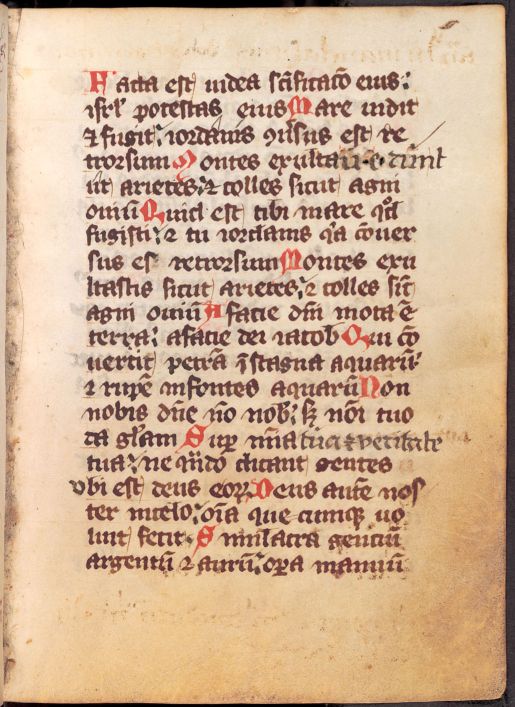 Facta est iudea sc̄ificat̄o eius:
isrl̄ potestas eius Mare uidit
⁊ fugit: iordanis ꝯuersus est re
trorsum Montes exultaueꝛūt
ut arietes: ⁊ colles sicut agni
ouiū Quid est tibi mare qd̄
fugisti: ⁊ tu iordanis q̄a cōuer
sus es retrorsum Montes exu
ltastis sicut arietes: ⁊ colles sic̄t
agni ouiū A facie dn̄i mota ē
terra: afacie dei iacob Qui cō
uertit petrā ī stagna aquarū:
⁊ rupē infontes aquarū Non
nobis dn̄e nō nob: sꝫ nōi tuo
da gl̄am Suꝑ mīa tua ⁊ veritate
tua: ne q̄ndo dicant gentes
vbi est deus eoꝝ Deus autē nos
ter incelo: oīa que cumqꝫ uo
luit fecit. Simulacra gentiū
argentū ⁊ aurū: oꝑa manuū